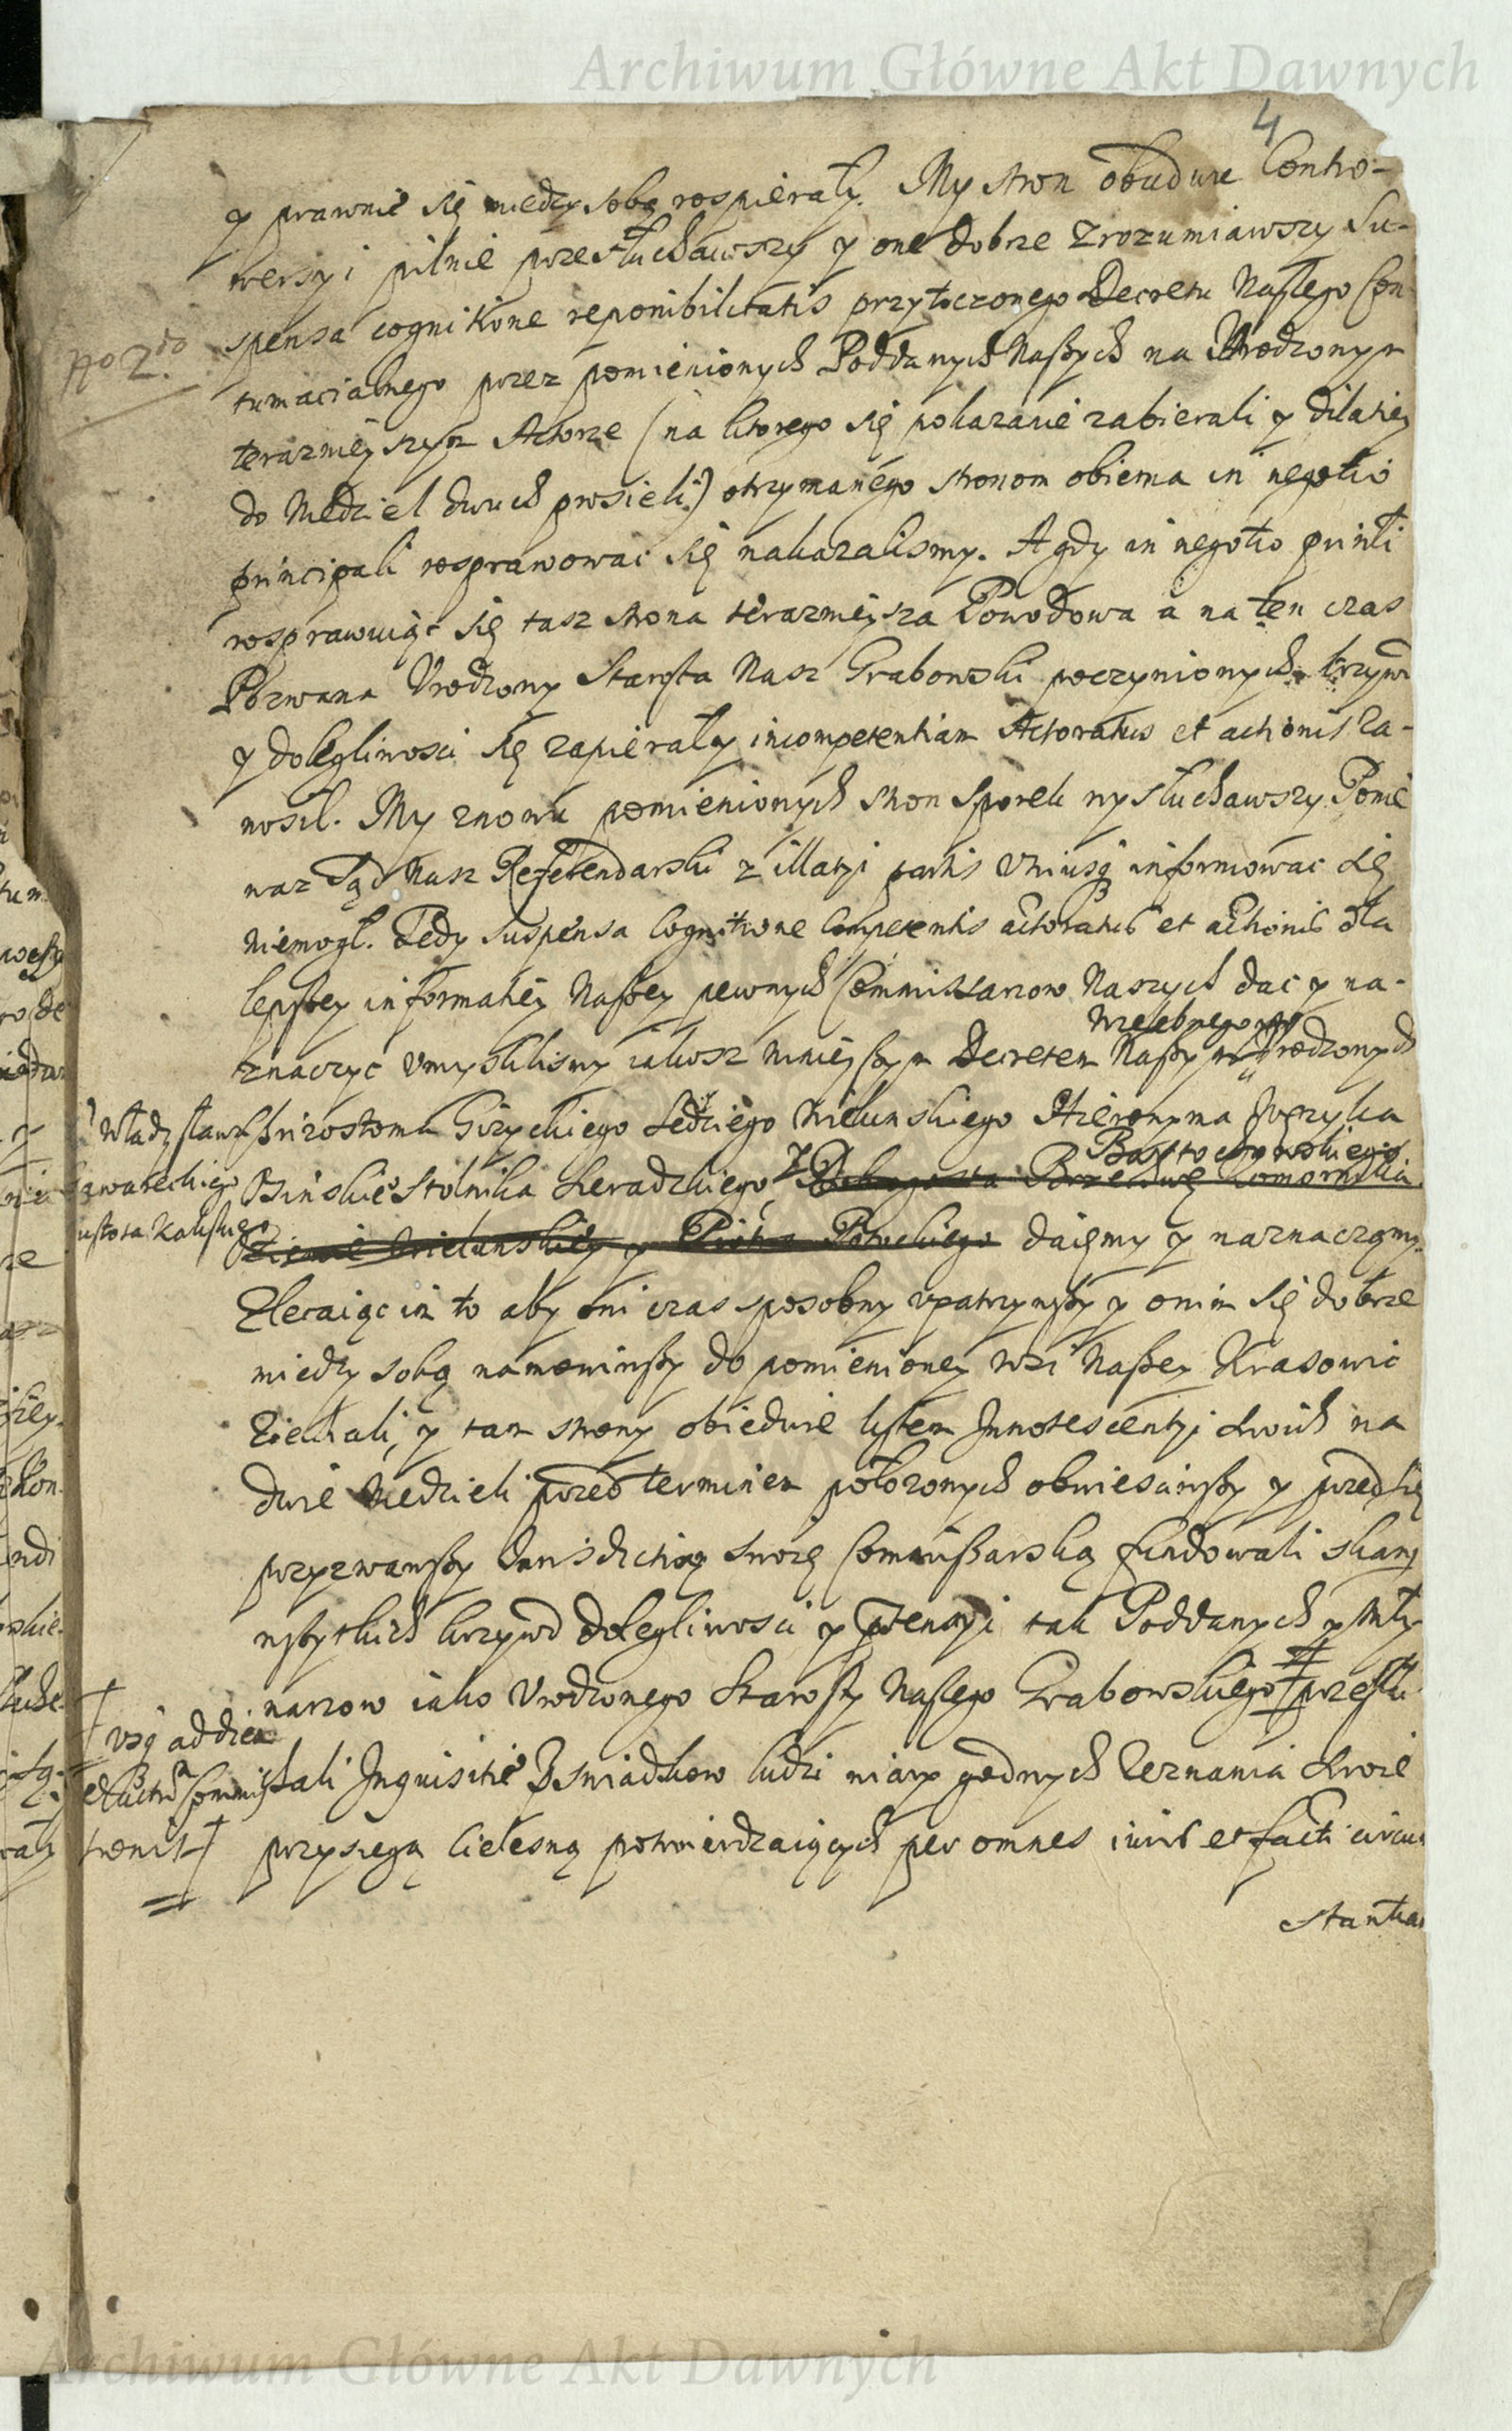 Archiwum Główne Akt Dawnych
4
y prawnie się miedzy sobą rospierały. My stron obudwu Contro-
wersyi pilnie przesłuchawszy y one dobrze zrozumiawszy su-
spensa cognitione reponibilitatis przytoczonego Decretu Naszego Con
No 2do
tumacialnego przez pomienionych Poddanych Naszych na Urodzonym
teraznieyszym Actorze (na ktorego się pokazanie zabierali y dilatiey
do Niedziel dwuch prosieli) otrzymanego stronom obiema in negotio
principali rosprawować się nakazalismy. A gdy in negotio prinłi
rosprawuiąc się tasz strona teraznieysza Powodowa a na ten czas
Pozwana Urodzony Starosta Nasz Grabowski poczynionych krzywd
y dolegliwosci się zapierał y incompetentiam Actoratus et actionis za-
nosił. My znowu pomienionych stron sporek wysłuchawszy Ponie
waz Sąd Nasz Referendarski z illatyi partis unius informowac się
niemogł. Tedy suspensa Cognitione Competentis actoratus et actionis dla
lepszey informatiey Naszey pewnych Commissarzow Naszych dac y na-
Wielebnego
znaczyc umyslilismy iakosz ninieyszym Decretem Naszym Urodzonych
Władysława Chrizostoma Gizyckiego Sędziego Wielunskiego Hieronima
Bartochowskiego
Stolnika Sieradzkiego Komornika
Kaliskiego
Ziemie Wielunskiey y Piotra daięmy y naznaczamy.
Zlecaiąc im to aby oni czas sposobny upatrzywszy y onim się dobrze
miedzy sobą namowiwszy do pomienioney wsi Naszey Krasowic
Ziechali, y tam strony obiedwie listem Innotescentyi swoich na
dwie Niedzieli przed terminem położonych obwiesciwszy y przed się
przyzwawszy Iurisdictią swoię Commissarską fundowali skarg
wszytkich krzywd dolegliwosci y ptensyi tak Poddanych y Mły
narzow iako Urodzonego Starosty Naszego Grabowskiego przesłu
chali Inquisitie z swiadkow ludzi wiary godnych Zeznania swoie
przysięgą cielesną potwierdzaiących per omnes iuris et facti circum
stantias
Archiwum Główne Akt Dawnych